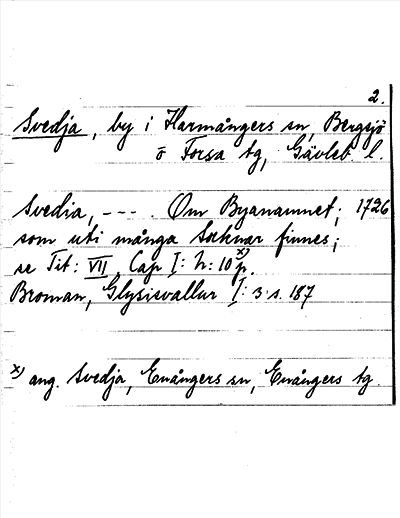 2.
Svedja, by i Harmångers sn, Bergsjö
o Forsa tg, Gävleb. l.
Svedia, --- . Om Byanamnet, 1726
som uti många Soknar finnes;
se Tit: VII, Cap I: n: 10 x) p.
Broman, Glysisvallur I: 3 s. 187
x) ang. Svedja, Enångers sn, Enångers tg.